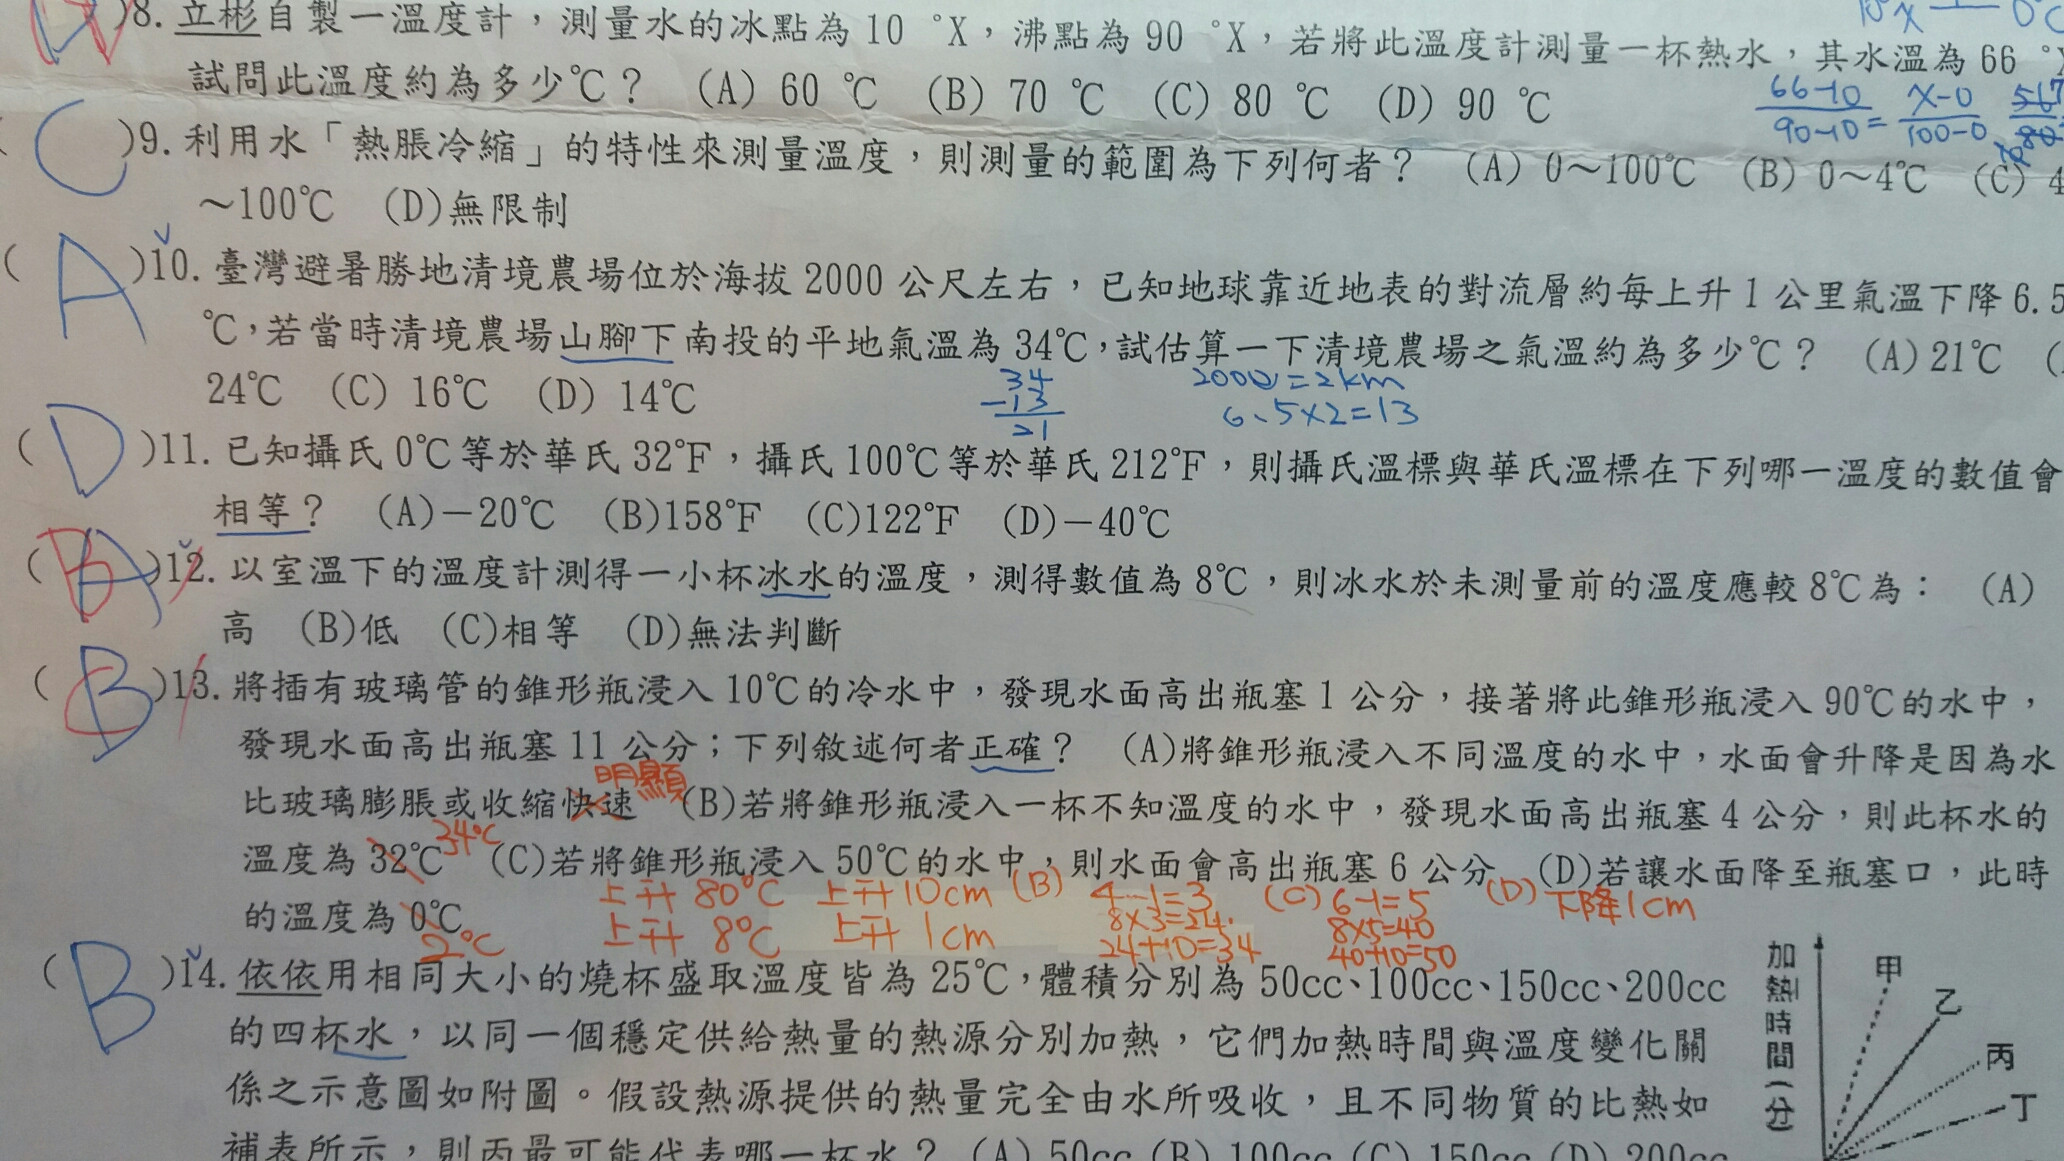 )8. 立彬自製一溫度計，測量水的冰點為 10 °X，沸點為 90 °X，若將此溫度計測量一杯熱水，其水溫為 66 °X
10°X 0°C
試問此溫度約為多少℃？ (A) 60 ℃ (B) 70 ℃ (C) 80 ℃ (D) 90 ℃
66-10 X-0
90-10 = 100-0
( C )9. 利用水「熱脹冷縮」的特性來測量溫度，則測量的範圍為下列何者？ (A) 0～100℃ (B) 0～4℃ (C) 4
～100℃ (D)無限制
( A )10. 臺灣避暑勝地清境農場位於海拔 2000 公尺左右，已知地球靠近地表的對流層約每上升 1 公里氣溫下降 6.5
℃，若當時清境農場山腳下南投的平地氣溫為 34℃，試估算一下清境農場之氣溫約為多少℃？ (A) 21℃ (
24℃ (C) 16℃ (D) 14℃
34
-13
21
2000=2km
6.5×2=13
( D )11. 已知攝氏 0℃等於華氏 32℉，攝氏 100℃等於華氏 212℉，則攝氏溫標與華氏溫標在下列哪一溫度的數值會
相等？ (A)－20℃ (B)158℉ (C)122℉ (D)－40℃
( A B )12. 以室溫下的溫度計測得一小杯冰水的溫度，測得數值為 8℃，則冰水於未測量前的溫度應較 8℃為： (A)
高 (B)低 (C)相等 (D)無法判斷
( B C )13. 將插有玻璃管的錐形瓶浸入 10℃的冷水中，發現水面高出瓶塞 1 公分，接著將此錐形瓶浸入 90℃的水中，
發現水面高出瓶塞 11 公分；下列敘述何者正確？ (A)將錐形瓶浸入不同溫度的水中，水面會升降是因為水
明顯
比玻璃膨脹或收縮快速 (B)若將錐形瓶浸入一杯不知溫度的水中，發現水面高出瓶塞 4 公分，則此杯水的
34℃
溫度為 32℃ (C)若將錐形瓶浸入 50℃的水中，則水面會高出瓶塞 6 公分 (D)若讓水面降至瓶塞口，此時
的溫度為 0℃
2℃
上升 80℃ 上升 10cm (B) 4-1=3 (C) 6-1=5 (D) 下降1cm
上升 8℃ 上升 1cm 8×3=24 8×5=40
24+10=34 40+10=50
( B )14. 依依用相同大小的燒杯盛取溫度皆為 25℃，體積分別為 50cc、100cc、150cc、200cc
的四杯水，以同一個穩定供給熱量的熱源分別加熱，它們加熱時間與溫度變化關
係之示意圖如附圖。假設熱源提供的熱量完全由水所吸收，且不同物質的比熱如
補表所示，則丙最可能代表哪一杯水？ (A) 50cc (B) 100cc (C) 150cc (D) 200cc
加熱時間(分)
甲
乙
丙
丁